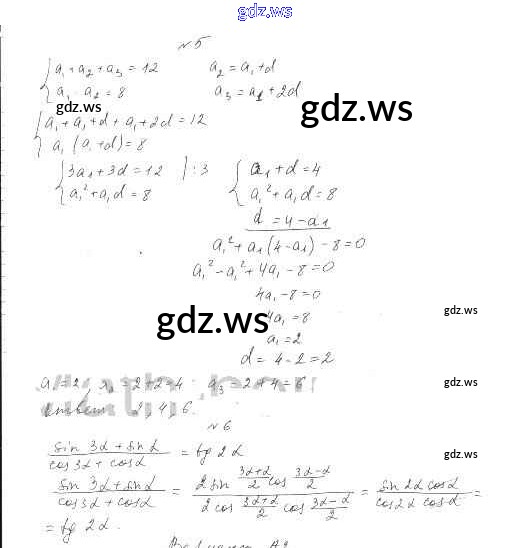 gdz.ws
№5
{a₁+a₂+a₃=12 a₂=a₁+d
{a₁·a₂=8 a₃=a₁+2d
gdz.ws
gdz.ws
{a₁+a₁+d+a₁+2d=12
{a₁(a₁+d)=8
{3a₁+3d=12 |:3 {a₁+d=4
{a₁²+a₁d=8 {a₁²+a₁d=8
d=4-a₁
a₁²+a₁(4-a₁)-8=0
a₁²-a₁²+4a₁-8=0
4a₁-8=0
gdz.ws
gdz.ws
4a₁=8
a₁=2
d=4-2=2
a₁=2; a₂=2+2=4; a₃=2+4=6
Ответ: 2, 4, 6.
№6
(sin 3α+sin α)/(cos 3α+cos α) = tg 2α
gdz.ws
(sin 3α+sin α)/(cos 3α+cos α) = (2 sin (3α+α)/2 cos (3α-α)/2)/(2 cos (3α+α)/2 cos (3α-α)/2) = (sin 2α cos α)/(cos 2α cos α) =
= tg 2α.